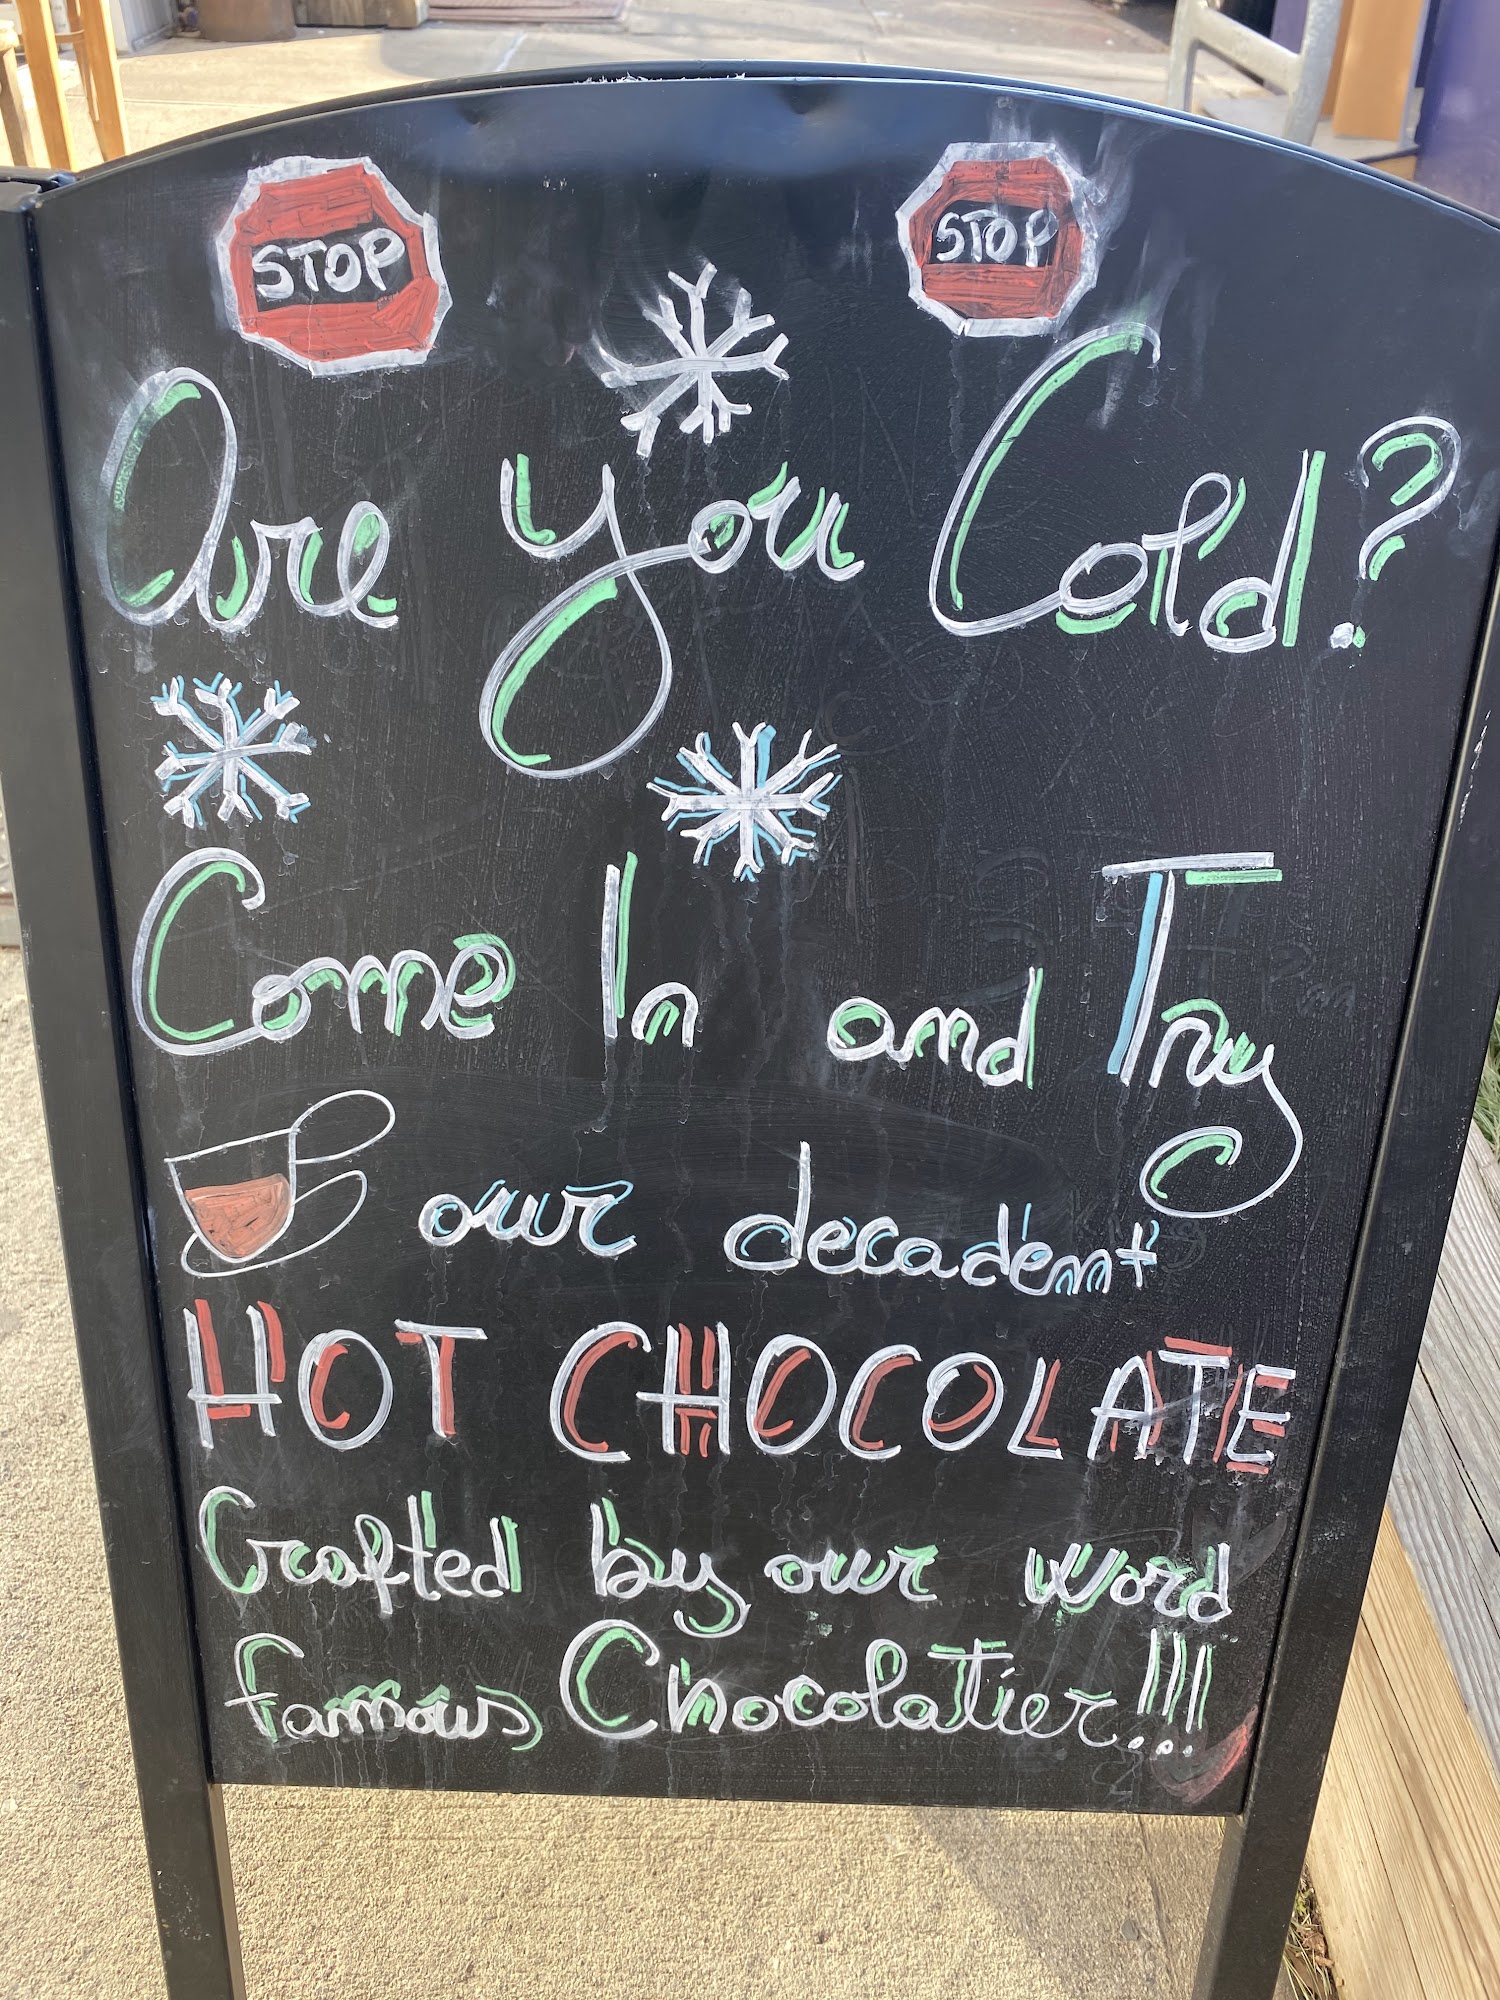 STOP STOP
Are you Cold?
Come In and Try
our decadent
HOT CHOCOLATE
Crafted by our word
famous Chocolatier!!!